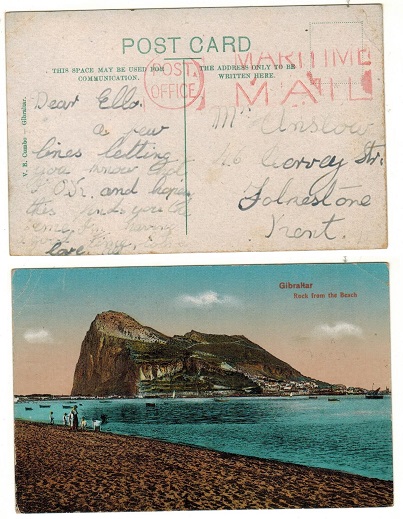 POST CARD
THIS SPACE MAY BE USED FOR
COMMUNICATION.
THE ADDRESS ONLY TO BE
WRITTEN HERE.
POST
OFFICE
MARITIME
MAIL
V. B. Cumbo – Gibraltar.
Dear Ella.
a few
lines letting
you know that
O.K. and hope
this finds you the
same
love
Mrs Onslow
Harvey Str.
Folkestone
Kent.
Gibraltar
Rock from the Beach